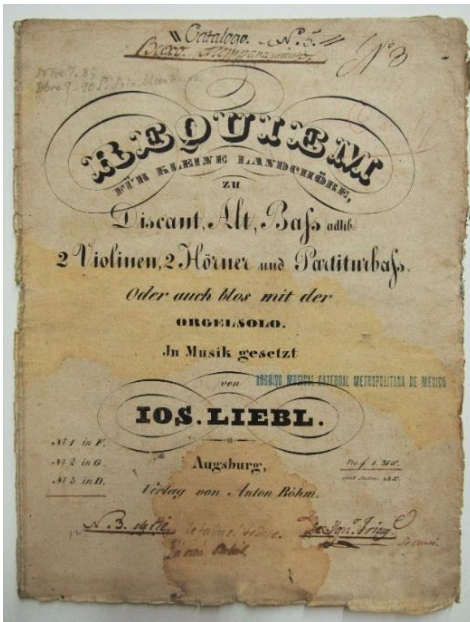 "Catalogo. Nº 5."
Nº 3
REQUIEM
FÜR KLEINE LANDCHÖRE,
ZU
Discant, Alt, Baſs (adlib:
2 Violinen, 2 Hörner und Partiturbaſs.
Oder auch blos mit der
ORGELSOLO.
In Musik gesetzt
von
ARCHIVO MUSICAL CATEDRAL METROPOLITANA DE MEXICO
IOS. LIEBL.
Nº 1 in F.
Nº 2 in G.
Nº 3 in D.
Augsburg,
Verlag von Anton Böhm.